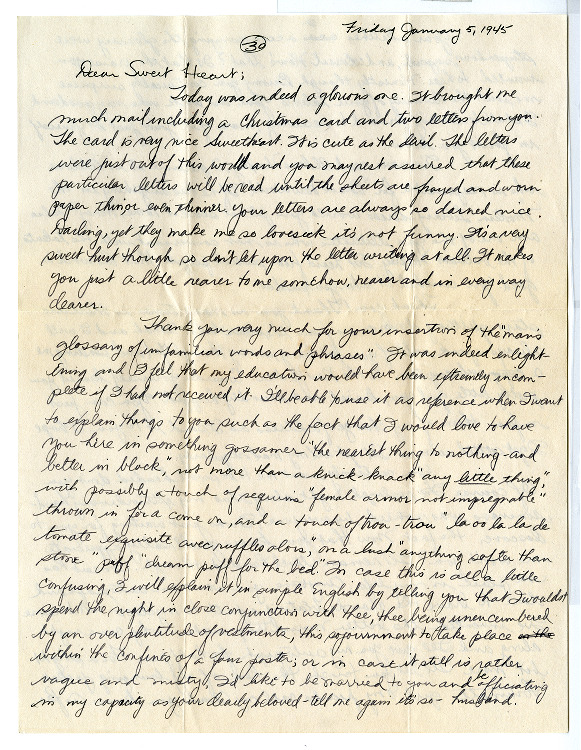 Friday January 5, 1945
30
Dear Sweet Heart;
Today was indeed a glorious one. It brought me
much mail including a Christmas card and two letters from you.
The card is very nice sweetheart. It is cute as the devil. The letters
were just out of this world and you may rest assured that these
particular letters will be read until the sheets are frayed and worn
paper thin, or even thinner. Your letters are always so darned nice
Darling, yet they make me so lovesick it's not funny. It's a very
sweet hurt though so don't let up on the letter writing at all. It makes
you just a little nearer to me somehow, nearer and in every way
dearer.
Thank you very much for your insertion of the "man's
glossary of unfamiliar words and phrases". It was indeed enlight-
ening and I feel that my education would have been extremely incom-
plete if I had not received it. I'll be able to use it as reference when I want
to explain things to you such as the fact that I would love to have
you here in something gossamer "the nearest thing to nothing - and
better in black", not more than a knick-knack "any little thing,"
with possibly a touch of sequins "female armor not impregnable"
thrown in for a come on, and a touch of frou-frou "la oo la la de
tomate exquisite avec ruffles alors", on a lush "anything softer than
stone" puff "dream puff for the bed." In case this is all a little
confusing, I will explain it in simple English by telling you that I would
spend the night in close conjunction with thee, thee being unencumbered
by an over plentitude of vestments, this sojournment to take place
within the confines of a four poster; or in case it still is rather
vague and misty, I'd like to be married to you and officiating
in my capacity as your dearly beloved - tell me again it's so - husband.